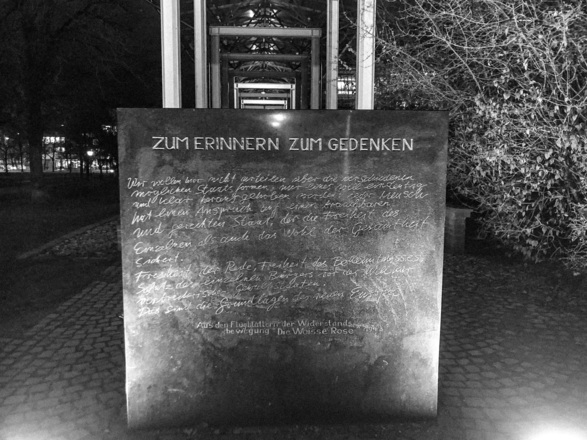 ZUM ERINNERN ZUM GEDENKEN
Wir wollen hier nicht urteilen über die verschiedenen
möglichen Staatsformen, nur eines will eindeutig
und klar herausgehoben werden: jeder Mensch
hat einen Anspruch auf einen brauchbaren
und gerechten Staat, der die Freiheit des
Einzelnen als auch das Wohl der Gesamtheit
sichert.
Freiheit der Rede, Freiheit des Bekenntnisses,
Schutz des einzelnen Bürgers vor der Willkür
verbrecherischer Gewaltstaaten,
Das sind die Grundlagen des neuen Europa.
Aus den Flugblättern der Widerstands-
bewegung "Die Weisse Rose"